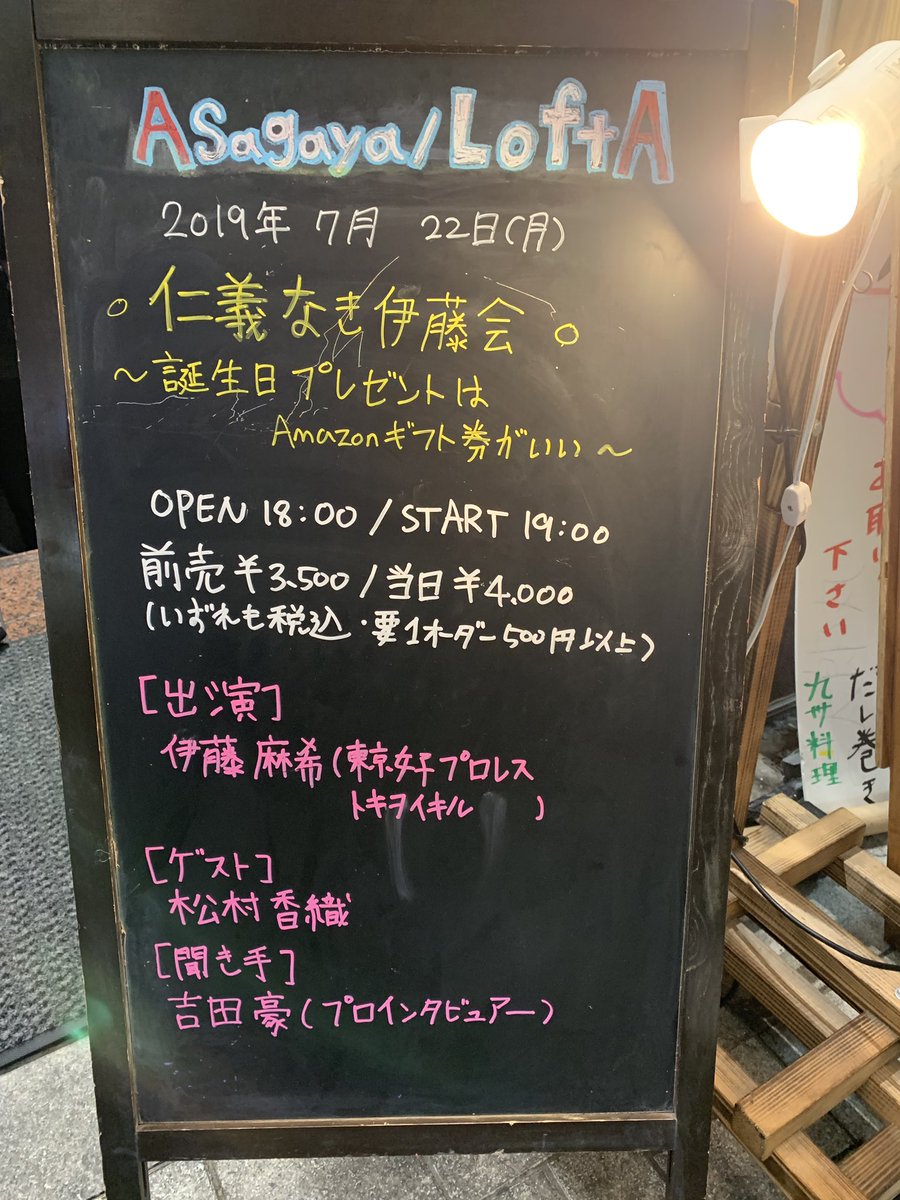 Asagaya/LoftA
2019年 7月 22日(月)
。仁義なき伊藤会。
～誕生日プレゼントは
Amazonギフト券がいい～
OPEN 18:00 / START 19:00
前売¥3.500 / 当日¥4.000
(いずれも税込・要1オーダー500円以上)
[出演]
伊藤麻希(東京女子プロレス
トキヲイキル )
[ゲスト]
松村香織
[聞き手]
吉田豪(プロインタビュアー)
下さい
だし巻き
九州料理